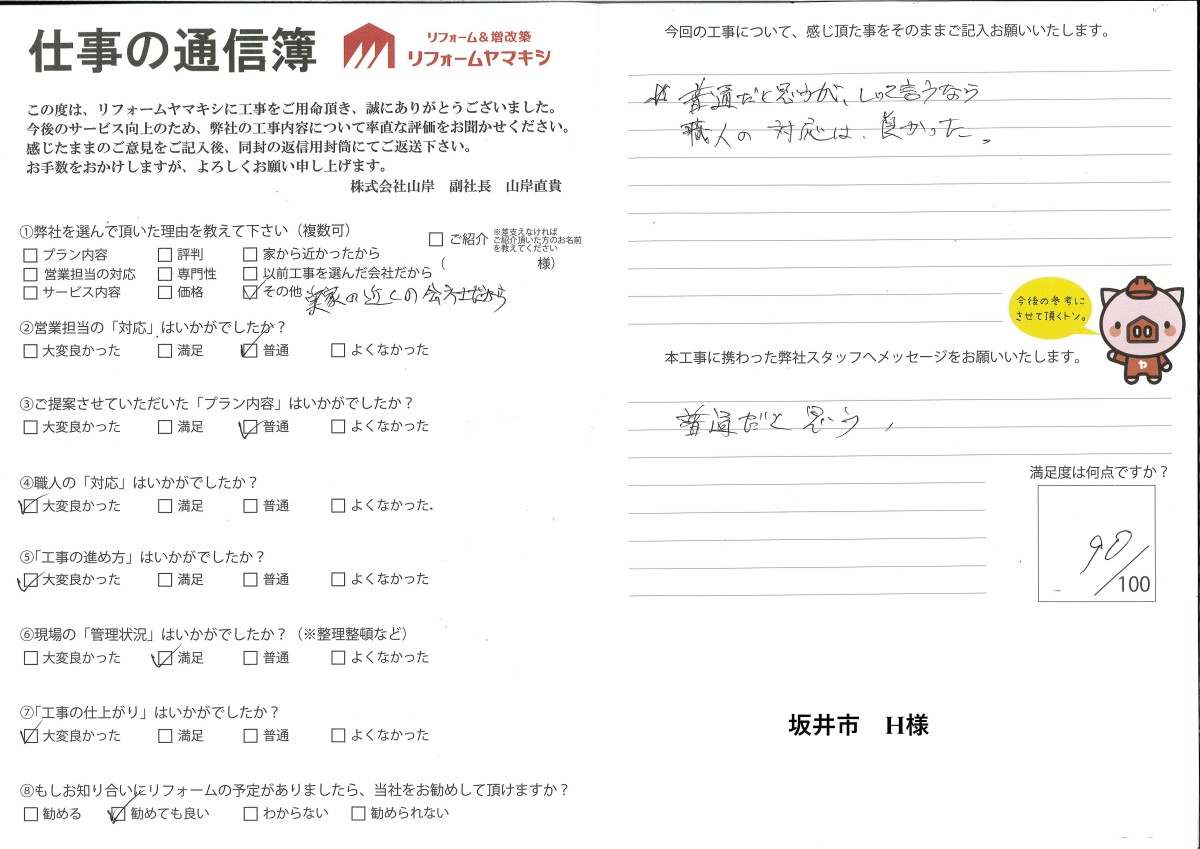 仕事の通信簿
リフォーム&増改築
リフォームヤマキシ
この度は、リフォームヤマキシに工事をご用命頂き、誠にありがとうございました。
今後のサービス向上のため、弊社の工事内容について率直な評価をお聞かせください。
感じたままのご意見をご記入後、同封の返信用封筒にてご返送下さい。
お手数をおかけしますが、よろしくお願い申し上げます。
株式会社山岸 副社長 山岸直貴
①弊社を選んで頂いた理由を教えて下さい（複数可）
□プラン内容 □評判 □家から近かったから
□営業担当の対応 □専門性 □以前工事を選んだ会社だから
□サービス内容 □価格 ☑その他 実家の近くの会社だから
□ご紹介 ※差支えなければ
ご紹介頂いた方のお名前
を教えてください
（ 様）
②営業担当の「対応」はいかがでしたか？
□大変良かった □満足 ☑普通 □よくなかった
③ご提案させていただいた「プラン内容」はいかがでしたか？
□大変良かった □満足 ☑普通 □よくなかった
④職人の「対応」はいかがでしたか？
☑大変良かった □満足 □普通 □よくなかった.
⑤「工事の進め方」はいかがでしたか？
☑大変良かった □満足 □普通 □よくなかった
⑥現場の「管理状況」はいかがでしたか？（※整理整頓など）
□大変良かった ☑満足 □普通 □よくなかった
⑦「工事の仕上がり」はいかがでしたか？
☑大変良かった □満足 □普通 □よくなかった
⑧もしお知り合いにリフォームの予定がありましたら、当社をお勧めして頂けますか？
□勧める ☑勧めても良い □わからない □勧められない
今回の工事について、感じ頂た事をそのままご記入お願いいたします。
普通だと思うが、しいて言うなら
職人の対応は、良かった。
今後の参考に
させて頂くトン。
ヤ
本工事に携わった弊社スタッフへメッセージをお願いいたします。
普通だと思う、
満足度は何点ですか？
90/100
坂井市 H様